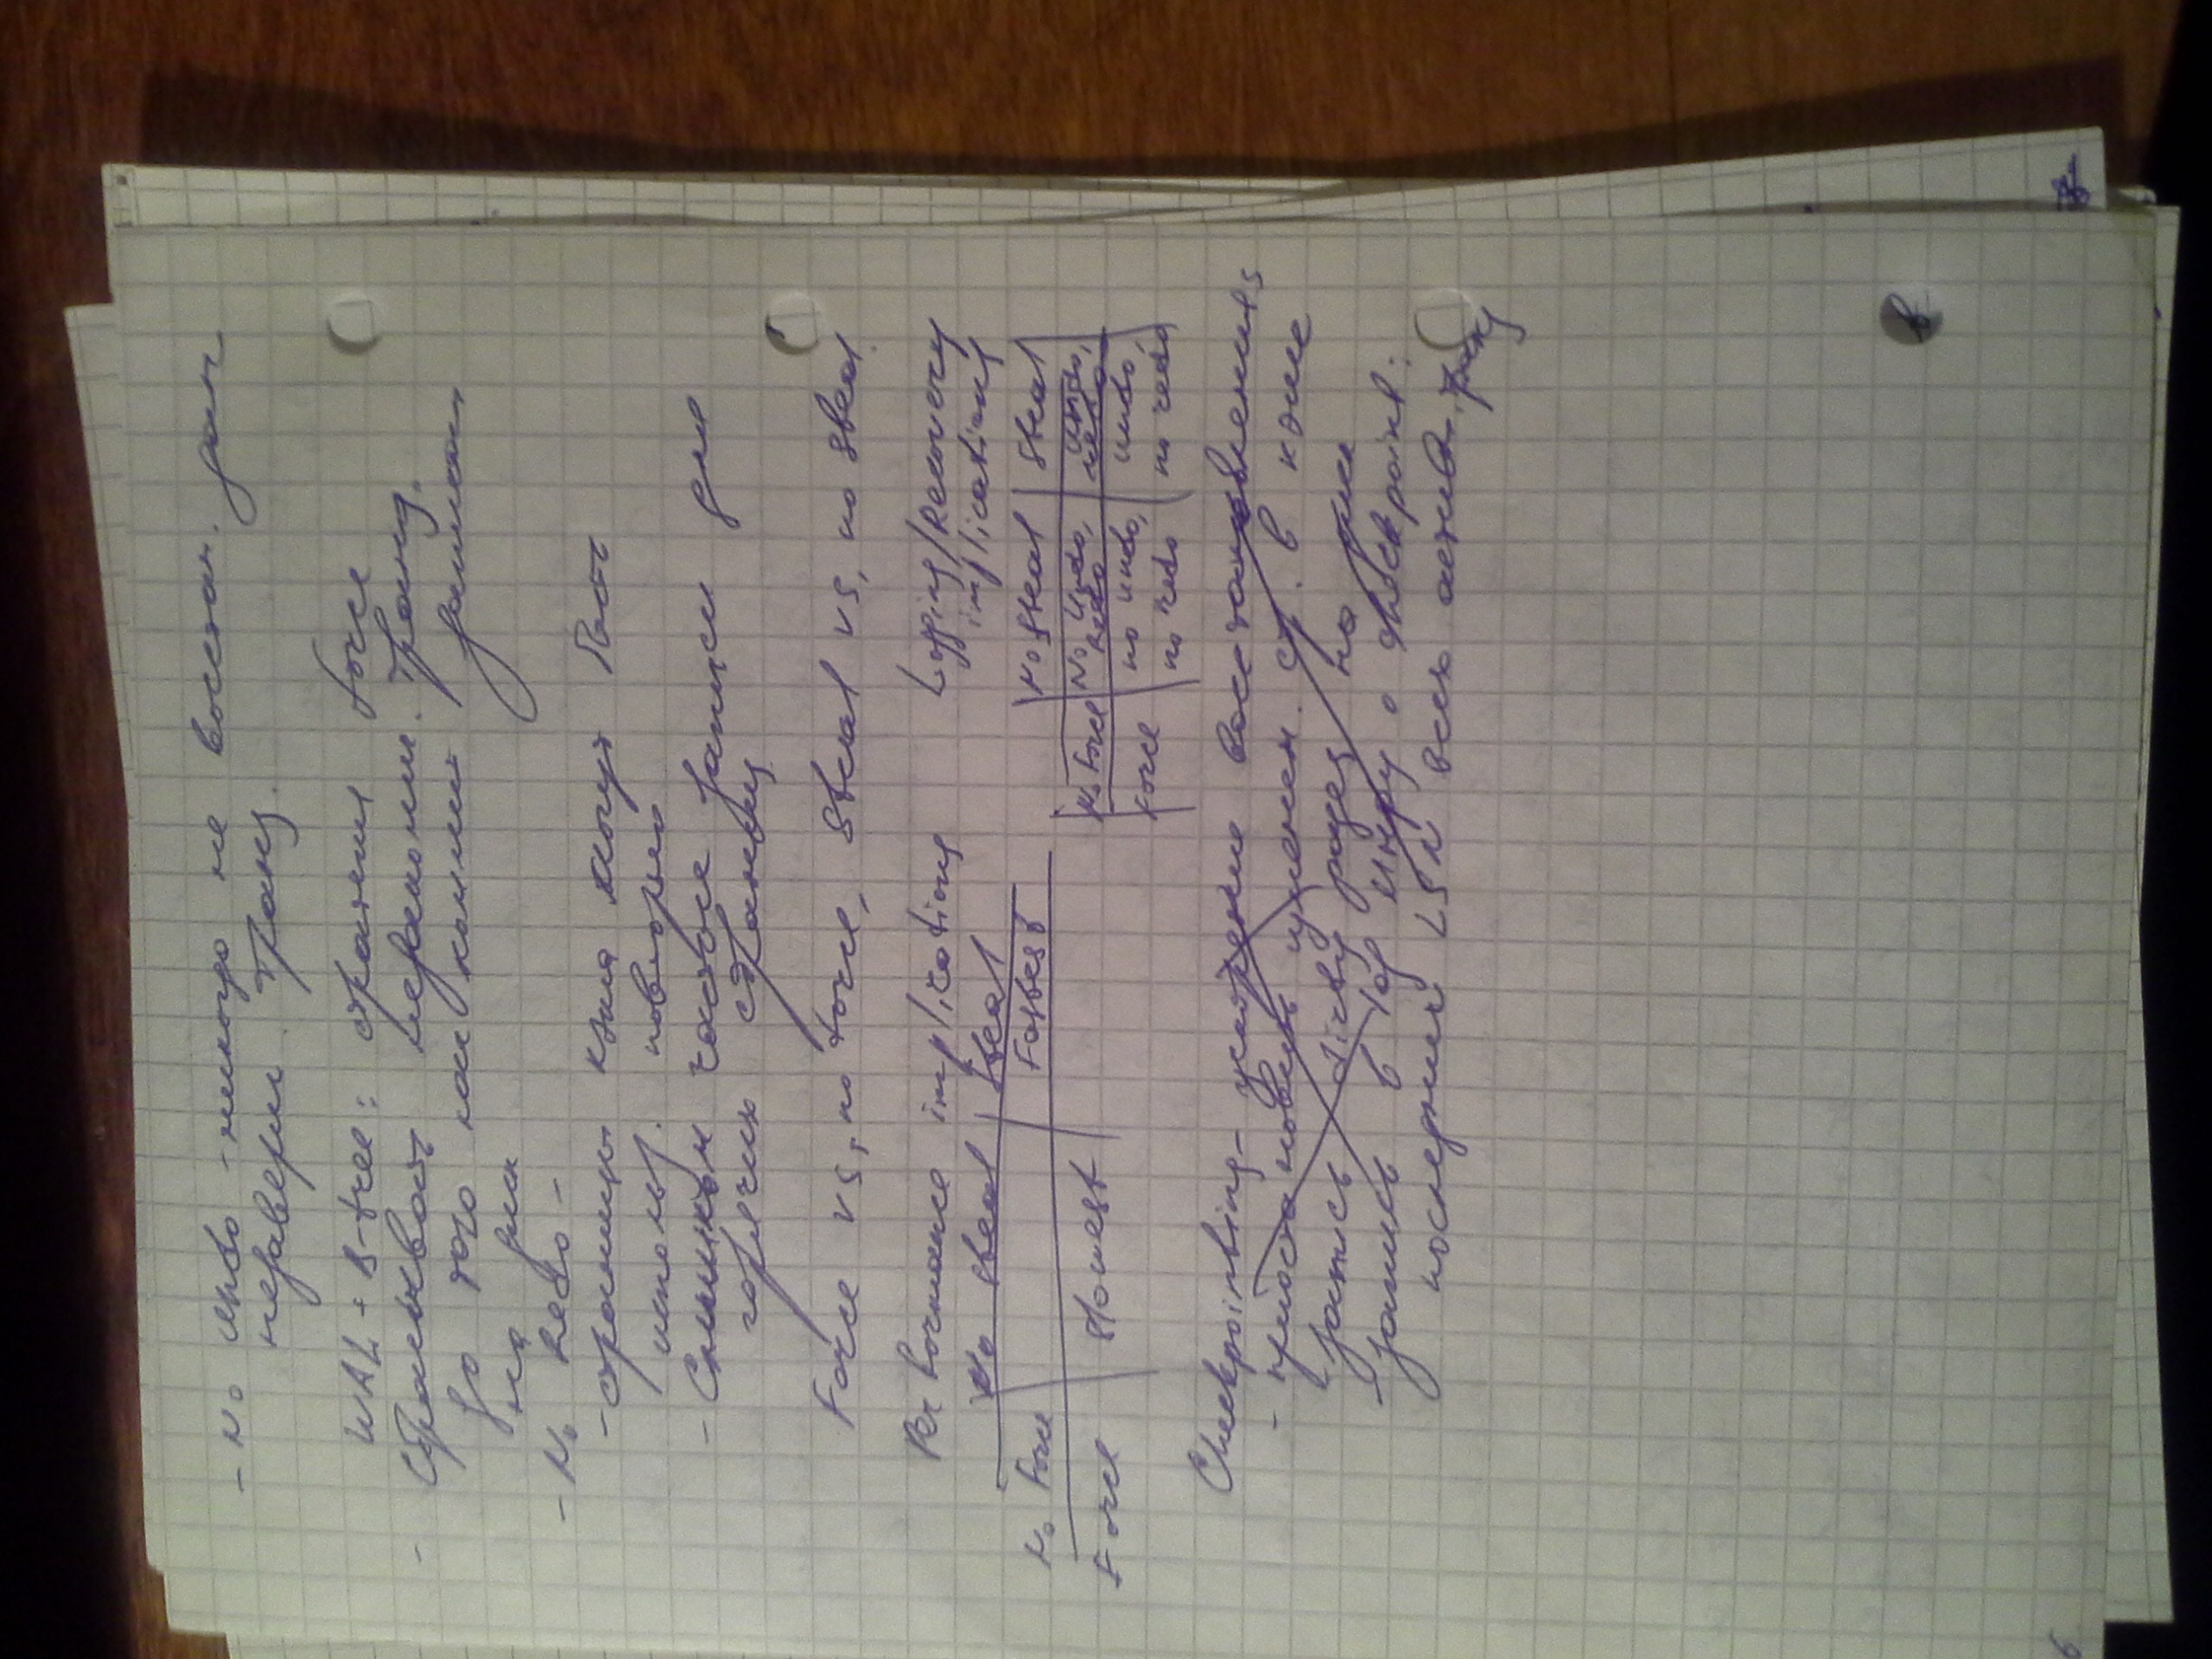 - No Undo - никогда не восстан. данн
незаверш. транз.
WAL + B-tree: стратегия force
- сбрасывать версионир. транз.
до того как коммит записан
на диск
- No Redo -
- страницы кэша могут быть
использ. повторно
- Слишком частые записи для
горячих страниц
Force vs. no force, steal vs. no steal.
Performance implications
No steal | Steal
No Force | | Fastest
Force | Slowest |
Logging/Recovery
implications
| No Steal | Steal
No Force | No Undo, Redo | Undo, redo
Force | no undo, no redo | undo, no redo
Checkpointing - ускорение восстановления
- приостановить изменен. стр. в кэше
запись dirty pages на диск
запись в log инфу о checkpoint:
последний LSN всех актив. транз